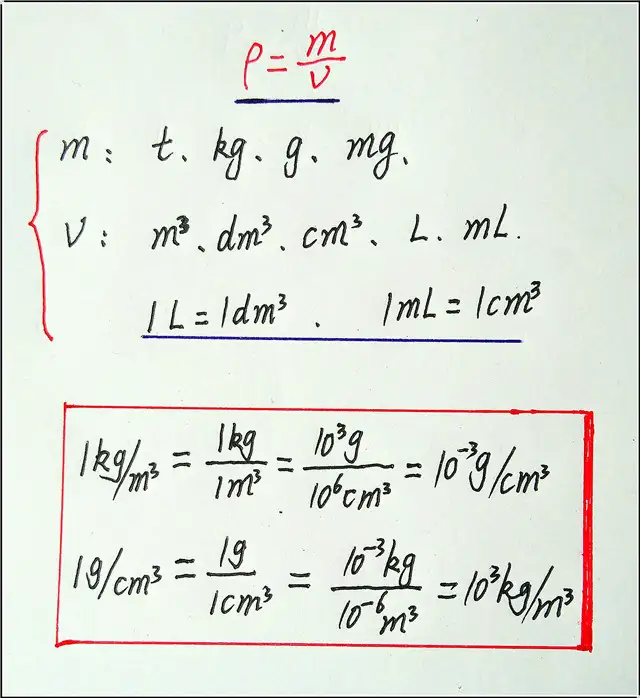 ρ = m/v
m： t、kg、g、mg、
v： m³、dm³、cm³、L、mL.
1L = 1dm³ . 1mL = 1cm³
1kg/m³ = 1kg/1m³ = 10³g/10⁶cm³ = 10⁻³g/cm³
1g/cm³ = 1g/1cm³ = 10⁻³kg/10⁻⁶m³ = 10³kg/m³